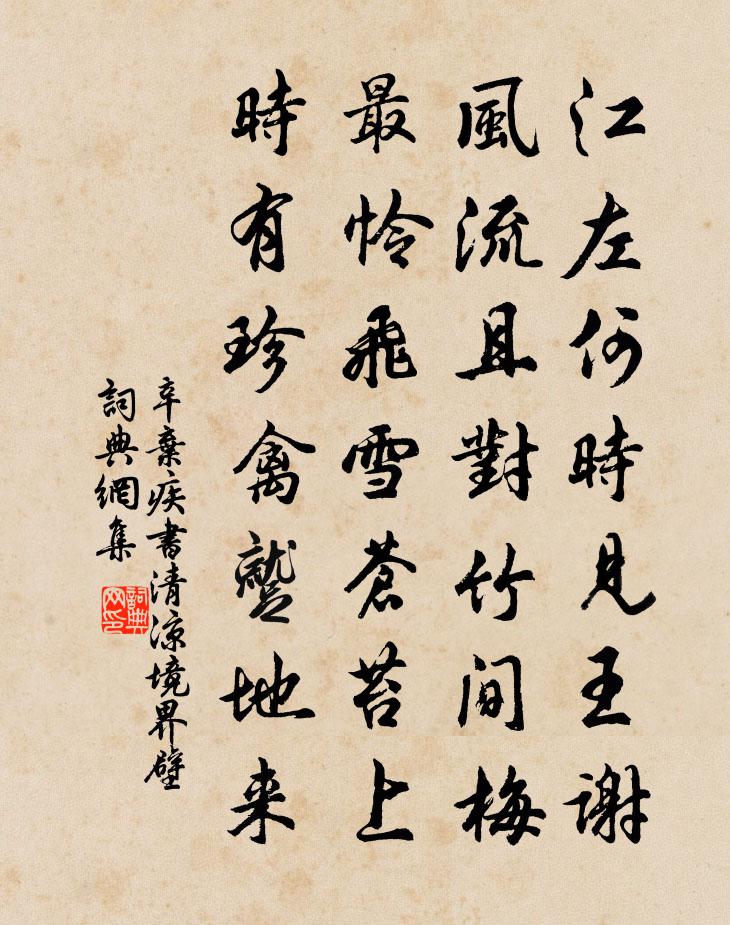 江左何時見王謝
風流且對竹間梅
最怜飛雪蒼苔上
時有珍禽蹵地来
辛棄疾書清涼境界壁
詞典網集
詞典网印